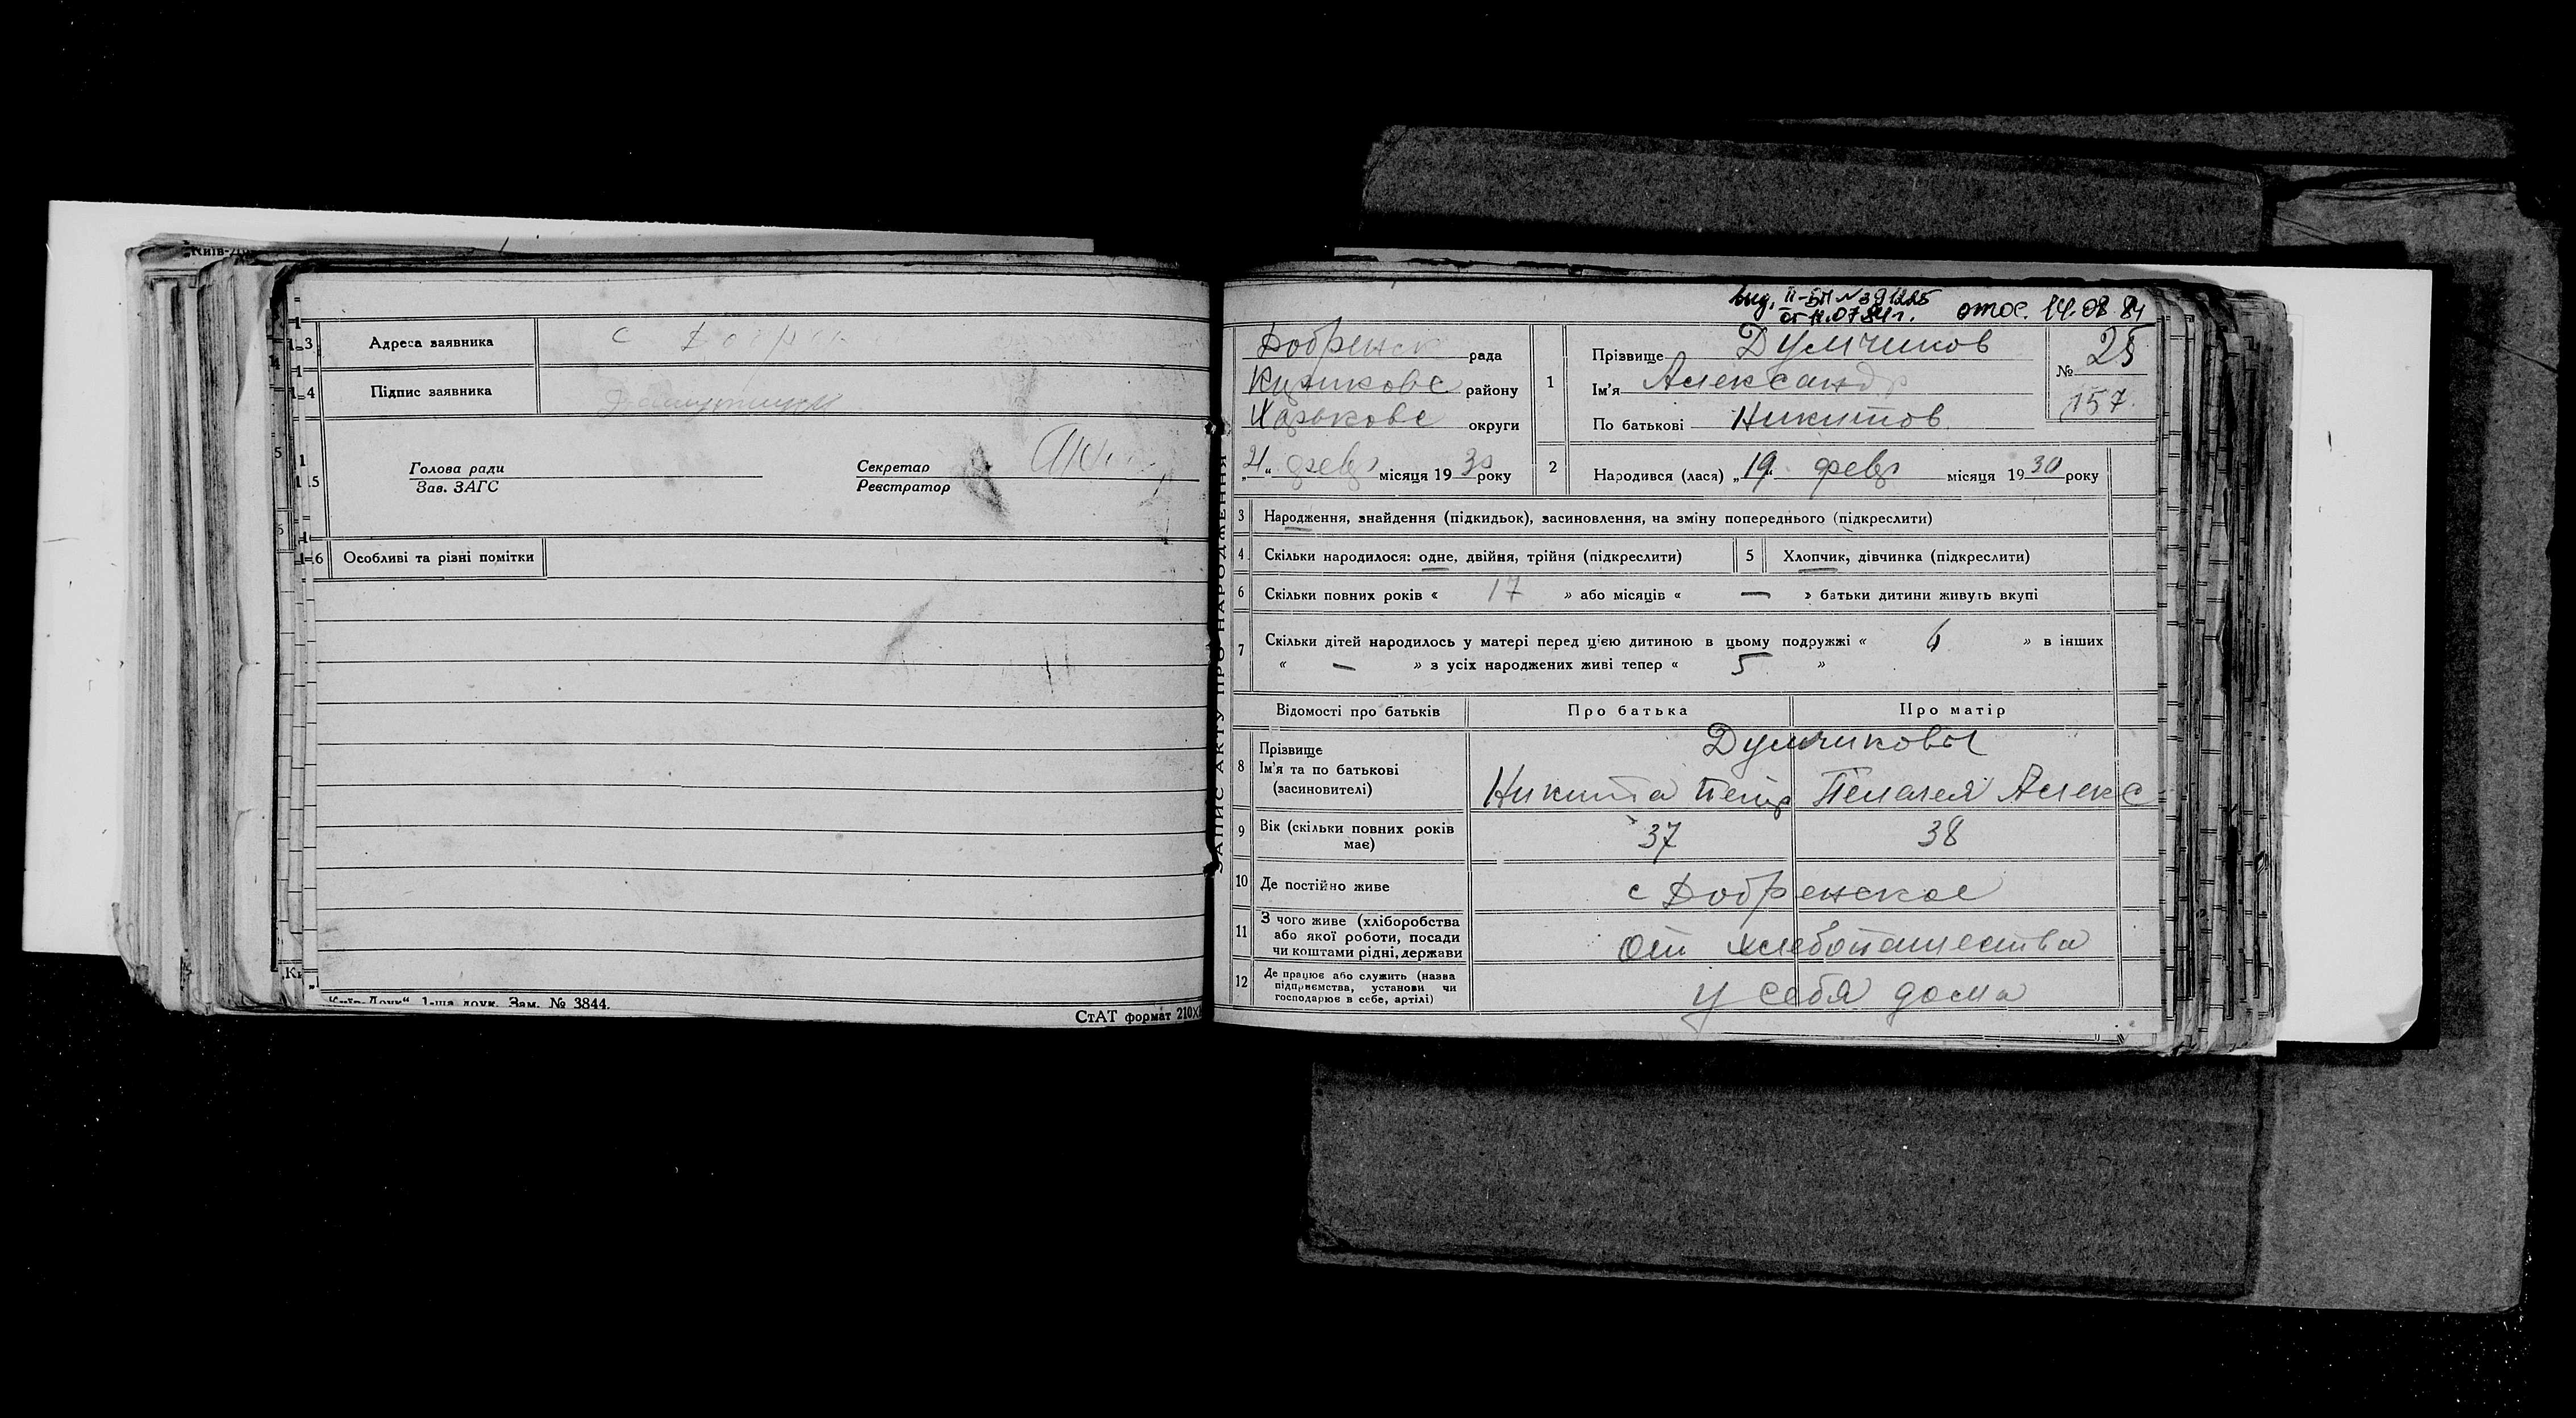 Київ-Дру
Адреса заявника с Добрен
Підпис заявника
Голова ради
Зав. ЗАГС
Секретар
Реєстратор
Особливі та різні помітки
„Київ-Друк“, 1-ша друк. Зам. № 3844.
СтАТ формат 210×
ЗАПИС АКТУ ПРО НАРОДЖЕННЯ
от 11.07.84 г. 14.08.84
Добренск рада
району
Харьковс округи
21 „ февр місяця 1930 року
1 Прізвище Думчиков
Ім'я Александр
По батькові Никитов
№ 25
157.
2 Народився (лася) „19 февр місяця 1930 року
3 Народження, знайдення (підкидьок), всиновлення, на зміну попереднього (підкреслити)
4 Скільки народилося: одне, двійня, трійня (підкреслити) 5 Хлопчик, дівчинка (підкреслити)
6 Скільки повних років « 17 » або місяців « — » батьки дитини живуть вкупі
7 Скільки дітей народилось у матері перед цією дитиною в цьому подружжі « 6 » в інших
« — » з усіх народжених живі тепер « 5 »
Відомості про батьків Про батька Про матір
8 Прізвище Думчиковы
Ім'я та по батькові
(засиновителі) Никита Петр Пелагея Алекс
9 Вік (скільки повних років має) 37 38
10 Де постійно живе с Добренское
11 З чого живе (хліборобства
або якої роботи, посади
чи коштами рідні, держави От хлебопашества
12 Де працює або служить (назва
підприємства, установи чи
господарює в себе, артілі) у себя дома